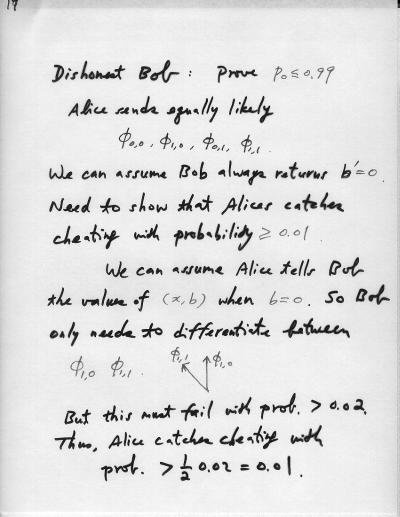 17
Dishonest Bob : Prove p₀ ≤ 0.99
Alice sends equally likely
ϕ₀,₀ , ϕ₁,₀ , ϕ₀,₁ , ϕ₁,₁ .
We can assume Bob always returns b'=0.
Need to show that Alices catches
cheating with probability ≥ 0.01
We can assume Alice tells Bob
the values of (x,b) when b=0. So Bob
only needs to differentiate between
ϕ₁,₀ ϕ₁,₁ . ϕ₁,₁ ϕ₁,₀
But this must fail with prob. > 0.02.
Thus, Alice catches cheating with
prob. > ½ 0.02 = 0.01.